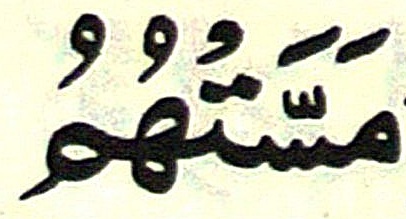 مَسَّتْهُمُ